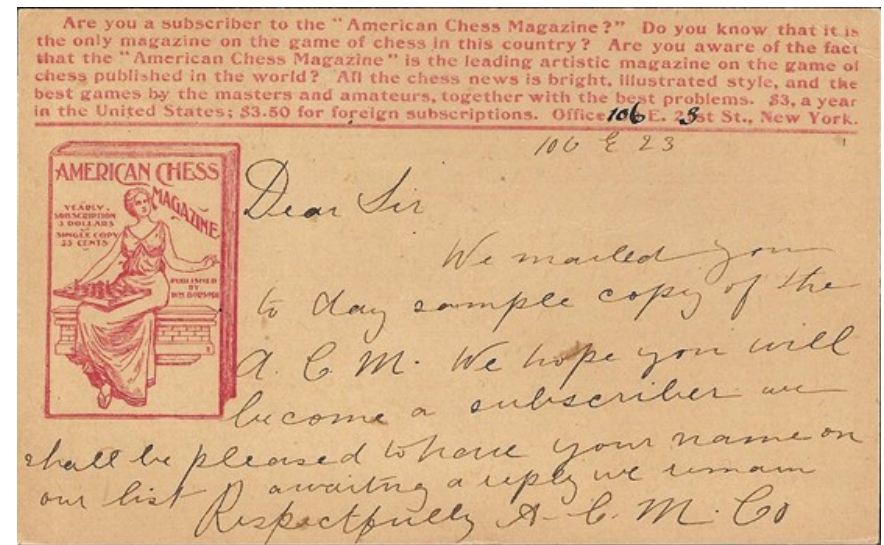 Are you a subscriber to the "American Chess Magazine?" Do you know that it is
the only magazine on the game of chess in this country? Are you aware of the fact
that the "American Chess Magazine" is the leading artistic magazine on the game of
chess published in the world? All the chess news is bright, illustrated style, and the
best games by the masters and amateurs, together with the best problems. $3, a year
in the United States; $3.50 for foreign subscriptions. Office 106 E. 23st St., New York.
106 E 23
AMERICAN CHESS
MAGAZINE
YEARLY
SUBSCRIPTION
3 DOLLARS
SINGLE COPY
25 CENTS
PUBLISHED
BY
Dear Sir
We mailed you
to day sample copy of the
A. C. M. We hope you will
become a subscriber we
shall be pleased to have your name on
our list awaiting a reply we remain
Respectfully A. C. M. Co